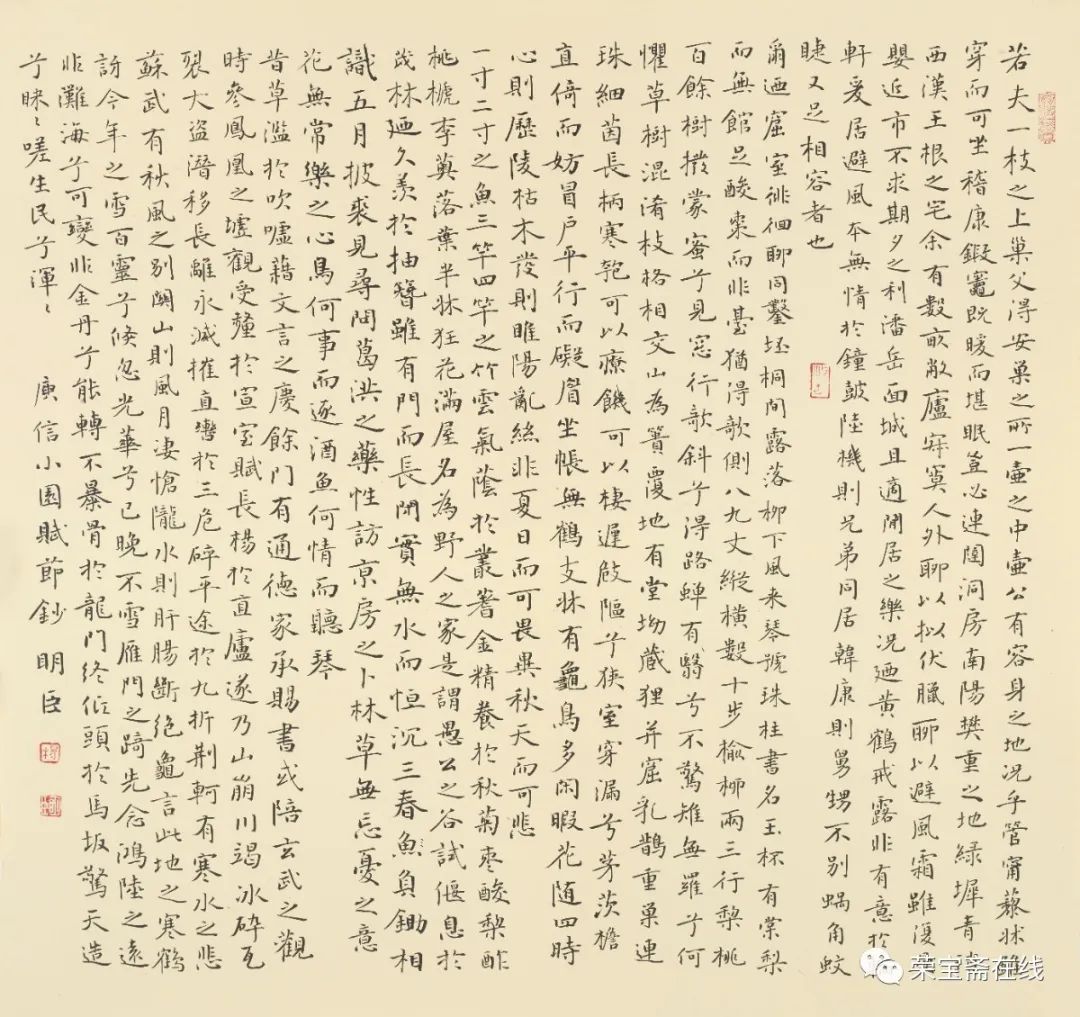 若夫一枝之上巢父得安巢之所一壷之中壷公有容身之地况乎管甯藜牀雖
穿而可坐嵇康鍛竈既暖而堪眠豈必連闥洞房南陽樊重之地緑墀青
西漢王根之宅余有數畝敝廬寂寞人外聊以拟伏臘聊以避風霜雖復晏
嬰近市不求朝夕之利潘岳面城且適閒居之樂况廼黄鶴戒露非有意於
軒爰居避風本無情於鐘鼓陸機則兄弟同居韓康則舅甥不别蝸角蚊
睫又足相容者也
爾廼窟室徘徊聊同鑿坯桐間露落柳下風来琴號珠柱書名玉杯有棠梨
而無館足酸棗而非臺猶得欹側八九丈縱横數十步榆柳兩三行梨桃
百餘樹撥蒙蜜兮見窓行欹斜兮得路蟬有翳兮不驚雉無羅兮何
懼草樹混淆枝格相交山為簣覆地有堂坳藏狸并窟乳鵲重巢連
珠細茵長柄寒匏可以療饑可以棲遲㩻䧢兮狹室穿漏兮茅茨檐
直倚而妨冒户平行而礙眉坐帳無鶴支牀有龜鳥多闲暇花随四時
心則歷陵枯木髮則睢陽亂絲非夏日而可畏異秋天而可悲
一寸二寸之魚三竿四竿之竹雲氣蔭於叢蓍金精養於秋菊棗酸梨酢
桃榹李薁落葉半牀狂花滿屋名為野人之家是謂愚公之谷試偃息於
茂林廼久羡於抽簪雖有門而長閉實無水而恒沉三春負鋤相
識五月披裘見尋問葛洪之藥性訪京房之卜林草無忘憂之意
花無常樂之心鳥何事而逐酒魚何情而聽琴
昔草濫於吹嘘藉文言之慶餘門有通德家承賜書或陪玄武之觀
時參鳳凰之墟觀受釐於宣室賦長楊於直廬遂乃山崩川竭冰碎瓦
裂大盗潛移長離永滅摧直轡於三危碎平途於九折荆軻有寒水之悲
蘇武有秋風之别關山則風月凄愴隴水則肝腸斷絶龜言此地之寒鶴
訝今年之雪百靈兮倏忽光華兮已晚不雪雁門之踦先念鴻陸之遠
非灘海兮可變非金丹兮能轉不暴骨於龍門終低頭於馬坂驚天造
兮昧昧嗟生民兮渾渾 庾信小園賦節鈔 明臣
荣宝斋在线